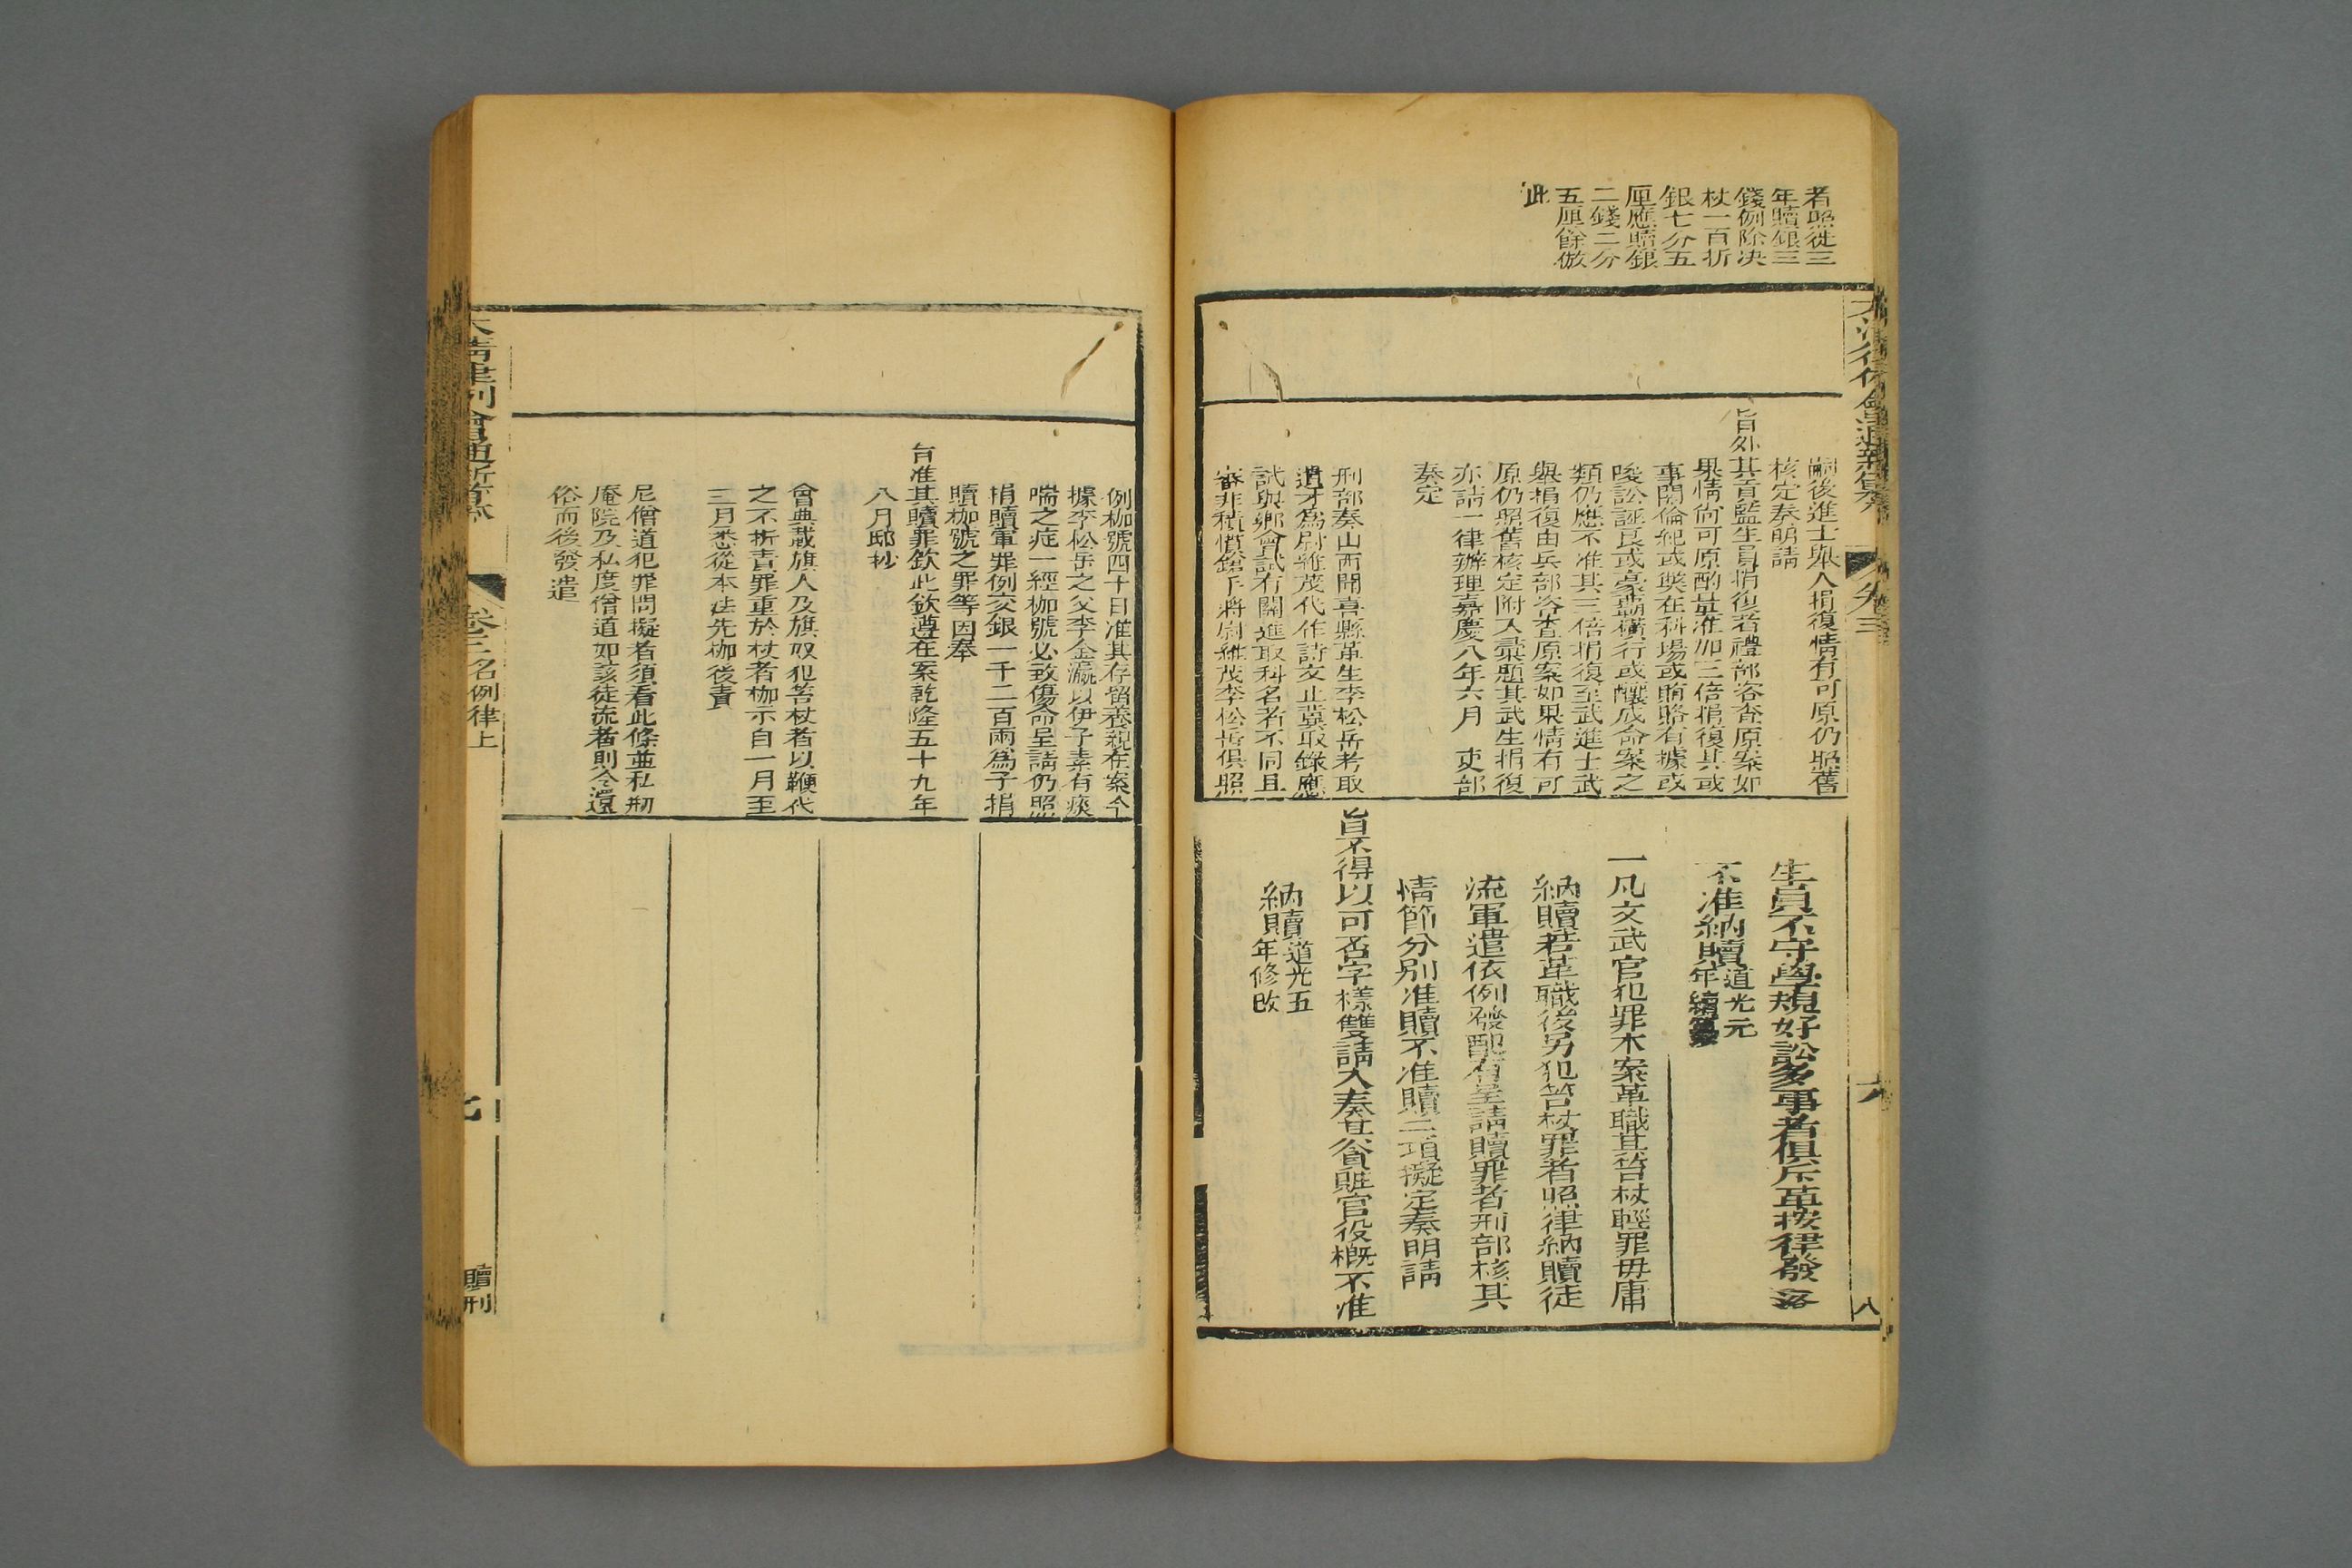 者照徙三
年贖銀三
錢例除决
杖一百折
銀七分五
厘應贖銀
二錢二分
五厘餘倣
此
嗣後進士舉人捐復情有可原仍照舊
核定奏明請
旨外其貢監生員捐復者禮部咨查原案如
果情尙可原酌量准加三倍捐復其或
事関倫紀或獎在科場或賄賂有據或
唆訟誣良或豪霸橫行或釀成命案之
類仍應不准其三倍捐復至武進士武
舉捐復由兵部咨查原案如果情有可
原仍照舊核定附入彙題其武生捐復
亦請一律辦理嘉慶八年六月 吏部
奏定
刑部奏山西聞喜縣革生李松岳考取
遺才爲尉維茂代作詩文止冀取錄應
試與鄉會試有關進取科名者不同且
審非積慣鎗手將尉維茂李松岳俱照
生員不守學規好訟多事者俱斥革按律發落
不准納贖道光元
年續纂
一凡文武官犯罪本案革職其笞杖輕罪毋庸
納贖若革職後另犯笞杖罪者照律納贖徒
流軍遣依例發配有呈請贖罪者刑部核其
情節分別准贖不准贖二項擬定奏明請
旨不得以可否字樣雙請入奏其貪贓官役槪不准
納贖道光五
年修改
六
八
例枷號四十日准其存留養親在案今
據李松岳之父李金瀛以伊子素有痰
喘之症一經枷號必致傷命呈請仍照
捐贖軍罪例交銀一千二百兩爲子捐
贖枷號之罪等因奉
旨准其贖罪欽此欽遵在案乾隆五十九年
八月邸抄
會典載旗人及旗奴犯笞杖者以鞭代
之不折責罪重於杖者枷示自一月至
三月悉從本法先枷後責
尼僧道犯罪問擬者須看此條並私刱
庵院及私度僧道如該徒流者則令還
俗而後發遣
大清律例會通新纂
卷三名例律上
七
贖刑